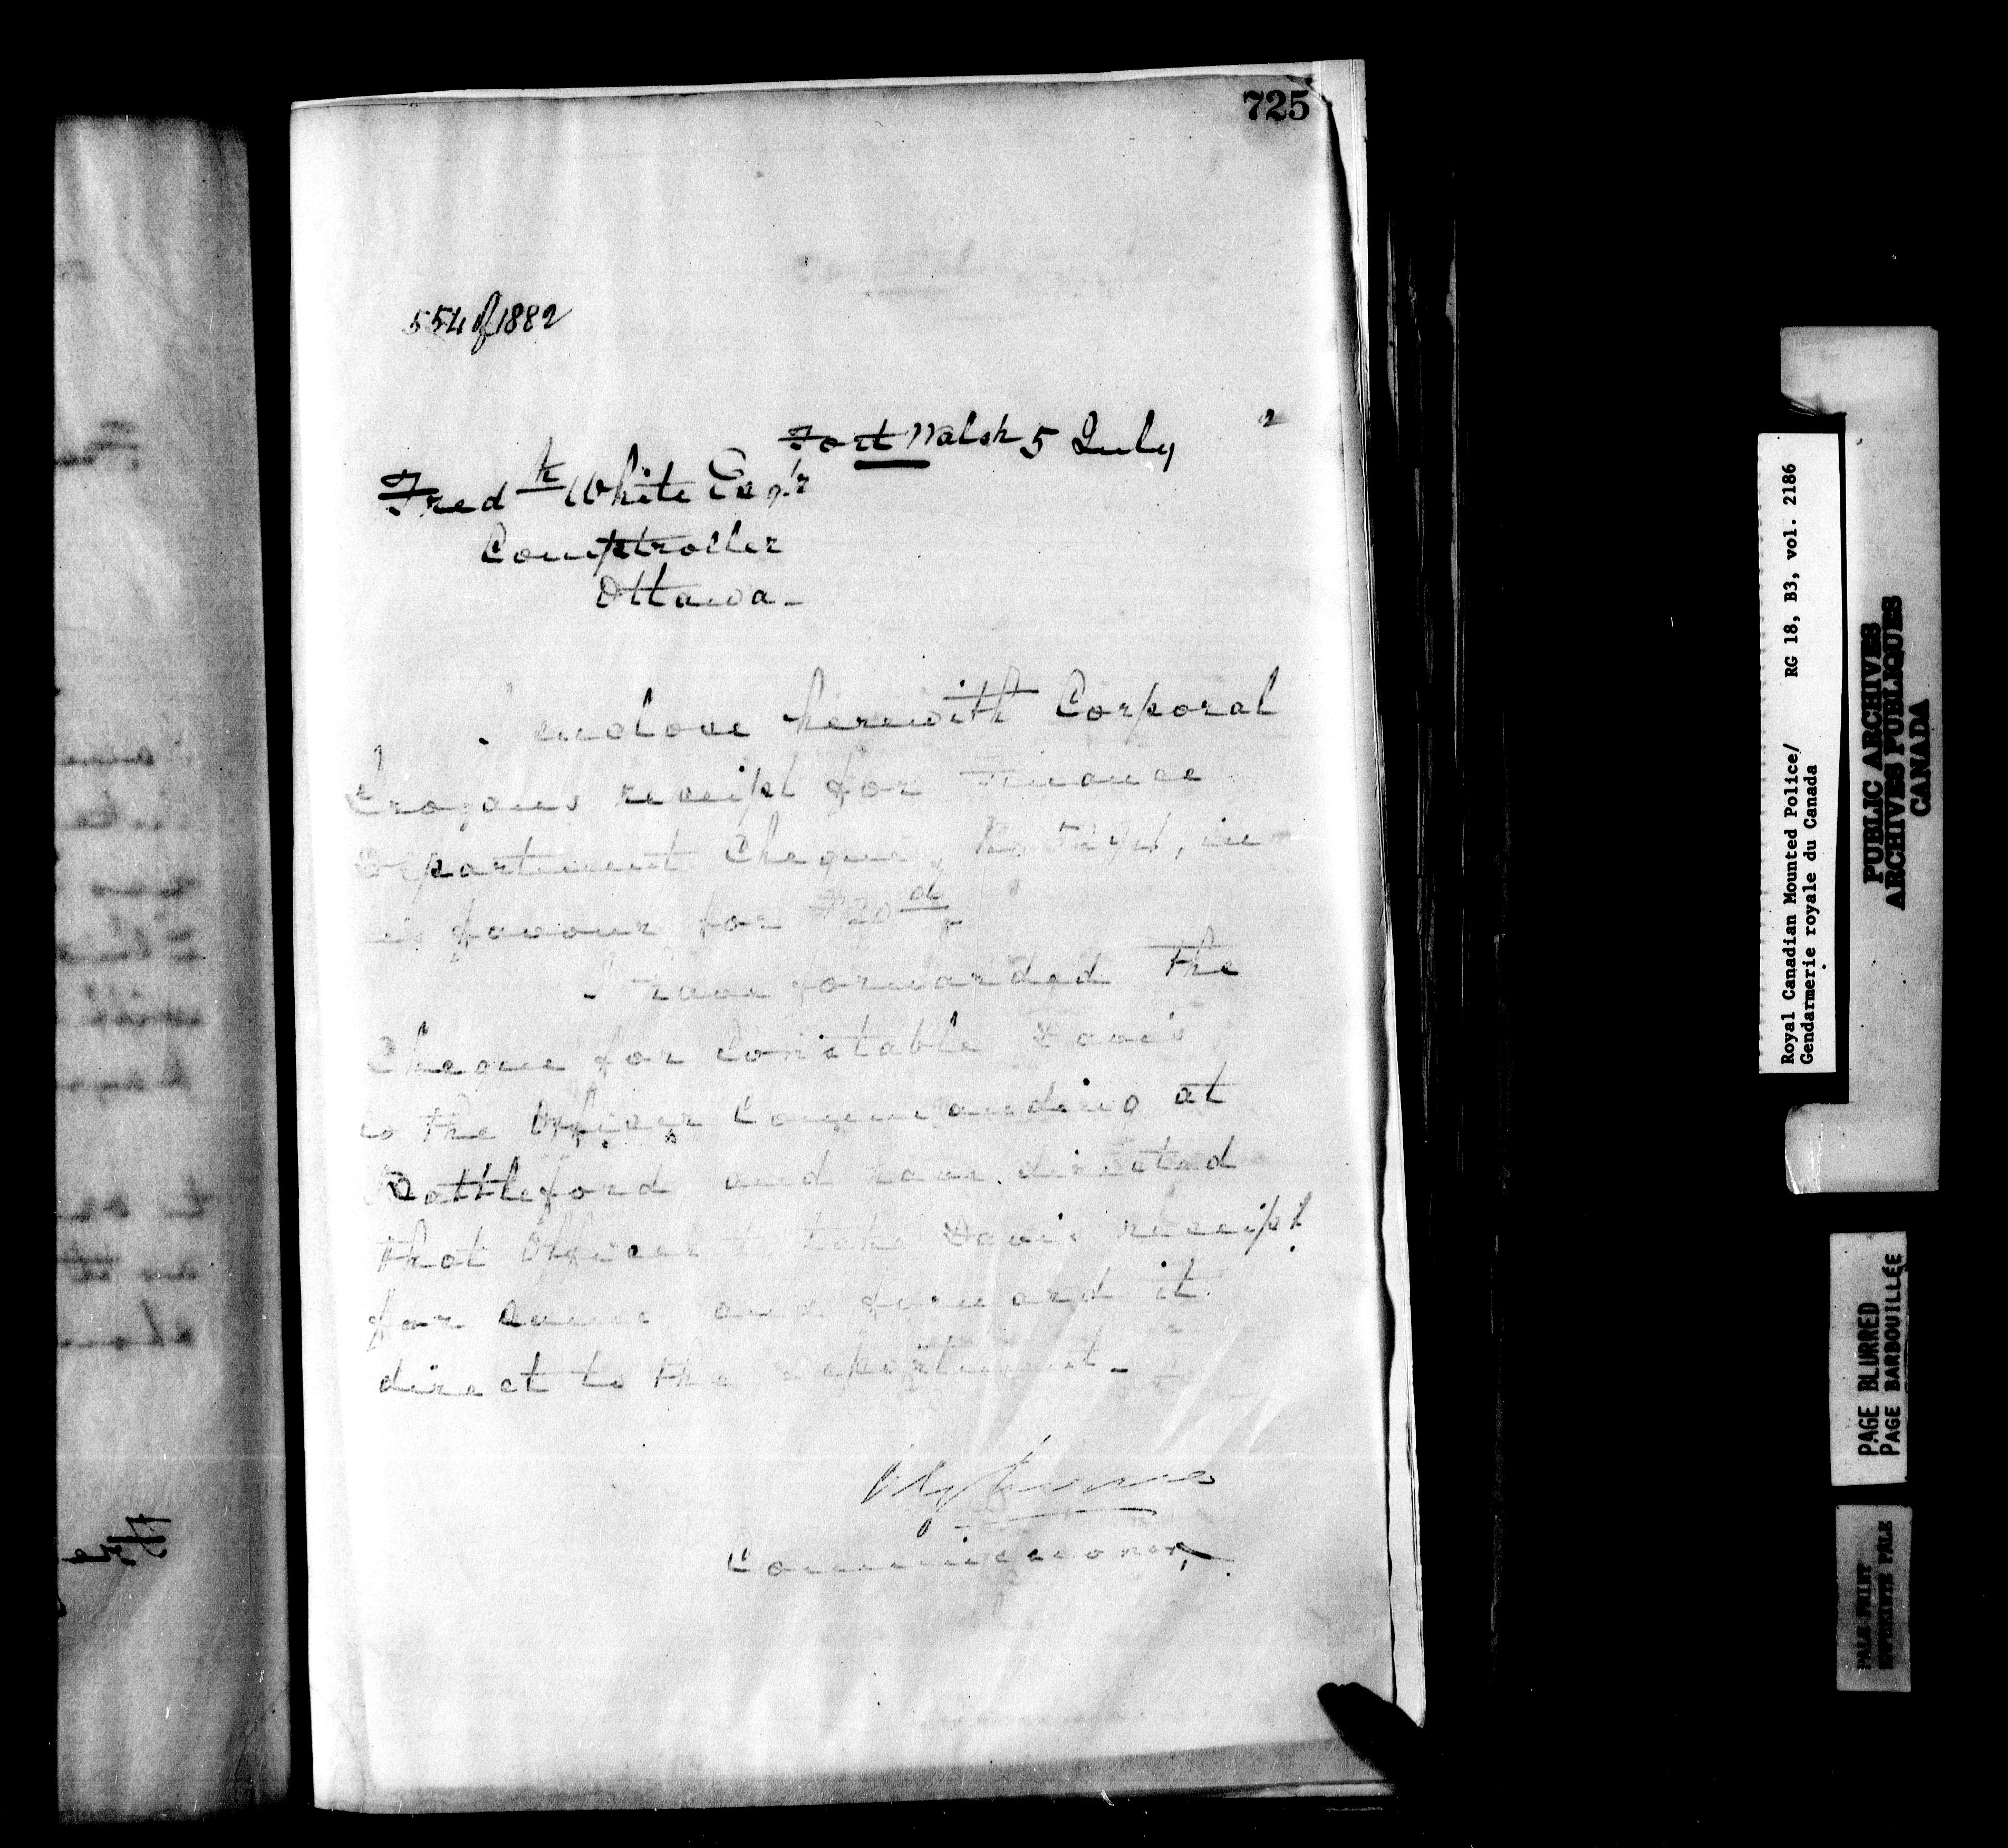 725
554 of 1882
Fort Walsh 5 July 2
Fredk White Esqr
Comptroller
Ottawa -
I enclose herewith Corporal
receipt for Finance
Department Cheque, No, in
his favour for $20 00/
I have forwarded the
Cheque for Constable Davis
to the Officer Commanding at
Battleford and have directed
that Officer to take Davis receipt
for same and forward it
direct to the Department -
Commissioner,
Royal Canadian Mounted Police/ RG 18, B3, vol. 2186
Gendarmerie royale du Canada
PUBLIC ARCHIVES
ARCHIVES PUBLIQUES
CANADA
PAGE BLURRED
PAGE BARBOUILLÉE
PALE PRINT
EPREUVE PALE